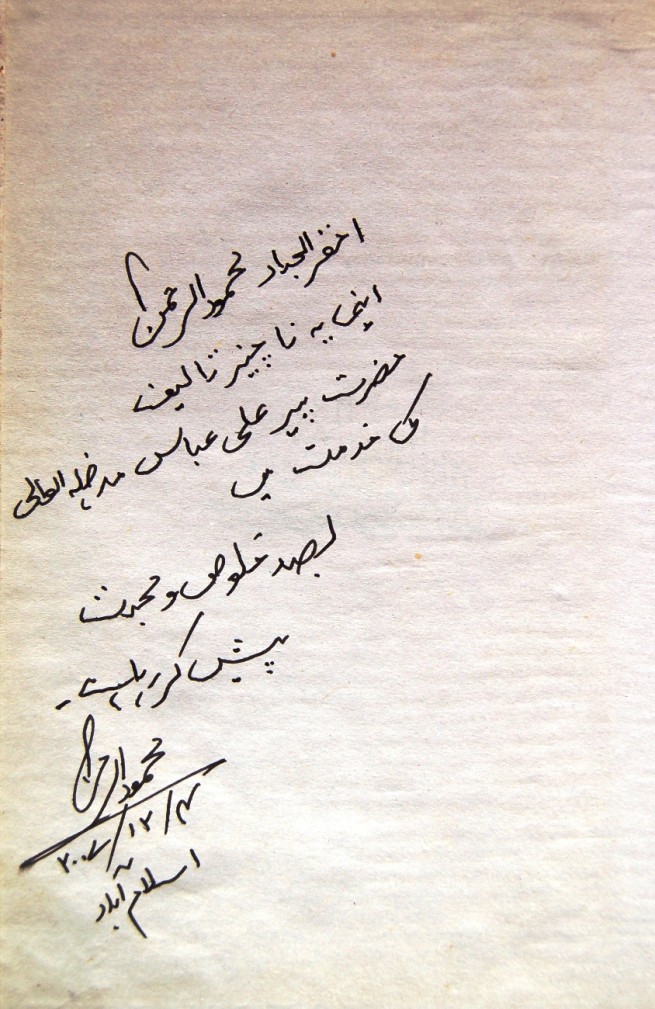 احقر العباد محمود الرحمٰن
اپنی یہ ناچیز تالیف
حضرت پیر علی عباس مدظلہ العالی
کی خدمت میں
بصد خلوص و محبت
پیش کر رہا ہے۔
محمود الرحمٰن
۴/۱۲/۲۰۰۷
اسلام آباد